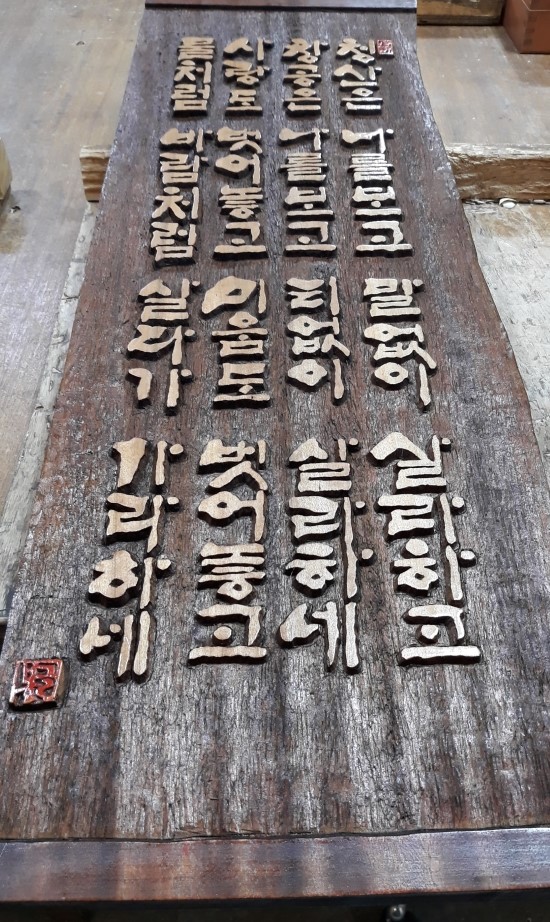 청산은 나를보고 말없이 살라하고
창공은 나를보고 티없이 살라하네
사랑도 벗어놓고 미움도 벗어놓고
물처럼 바람처럼 살다가 가라하네